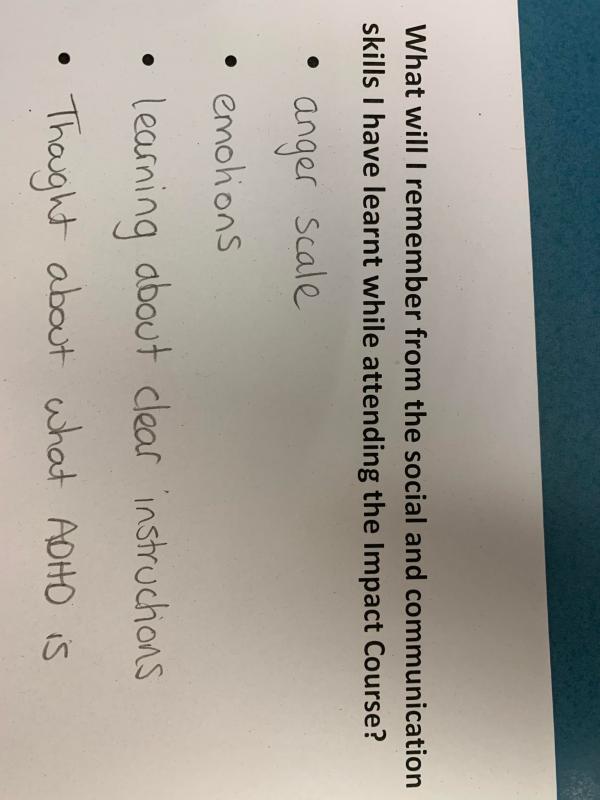 What will I remember from the social and communication
skills I have learnt while attending the Impact Course?
• anger scale
• emotions
• learning about clear instructions
• Thought about what ADHD is